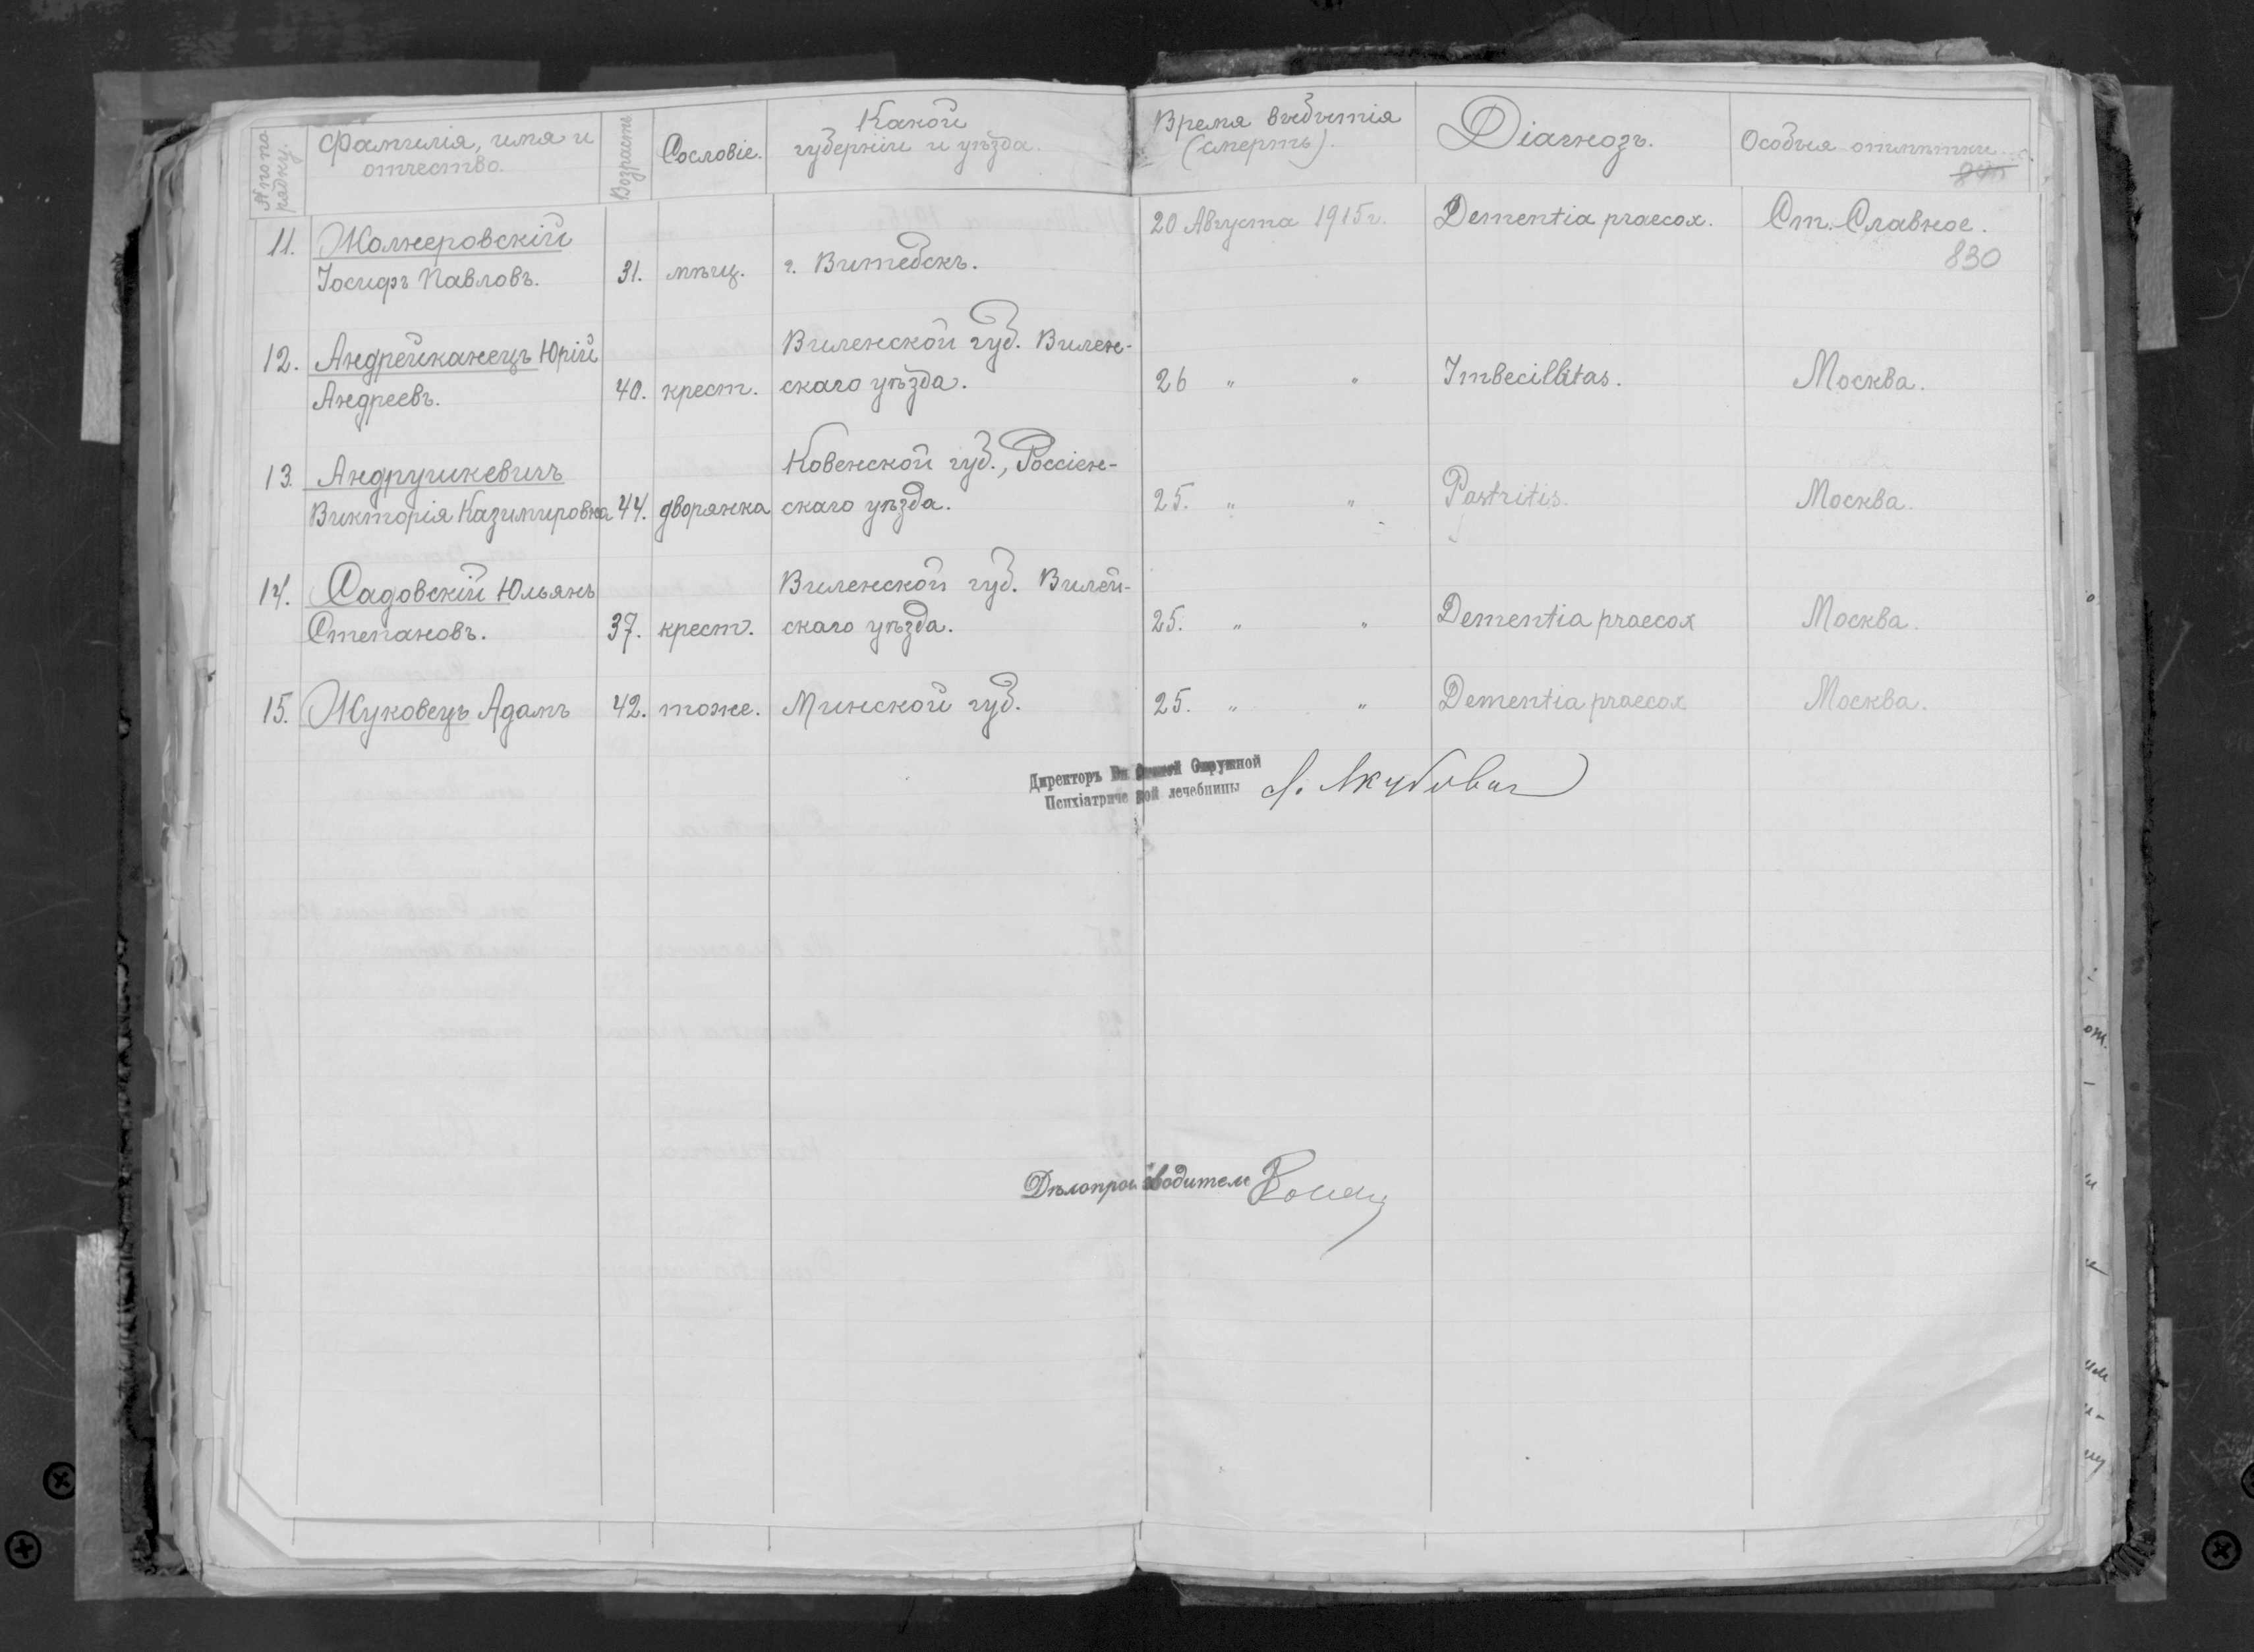 № по по-
рядку.
Фамилія, имя и
отчество.
Возрастъ
Сословіе.
Какой
губерніи и уѣзда.
Время выбытія
(смерть).
Діагнозъ.
Особыя отмѣтки
11. Жолнеровскій 20 Августа 1915 г. Dementia praecox. Ст. Славное.
830
Іосифъ Павловъ. 31. мѣщ. г. Витебскъ.
12. Андрейканецъ Юрій Виленской губ. Вилен-
Андреевъ. 40. крест. скаго уѣзда. 26 " " Imbecillitas. Москва.
13. Андрушкевичъ Ковенской губ., Россіен-
Викторія Казимировна 44. дворянка скаго уѣзда. 25. " " Москва.
14. Садовскій Юльянъ Виленской губ. Вилей-
Степановъ. 37. крест. скаго уѣзда. 25. " " Dementia praecox Москва.
15. Жуковецъ Адамъ 42. тоже. Минской губ. 25. " " Dementia praecox Москва.
Директоръ Окружной
Психіатриче кой лечебницы
Дѣлопроизводитель